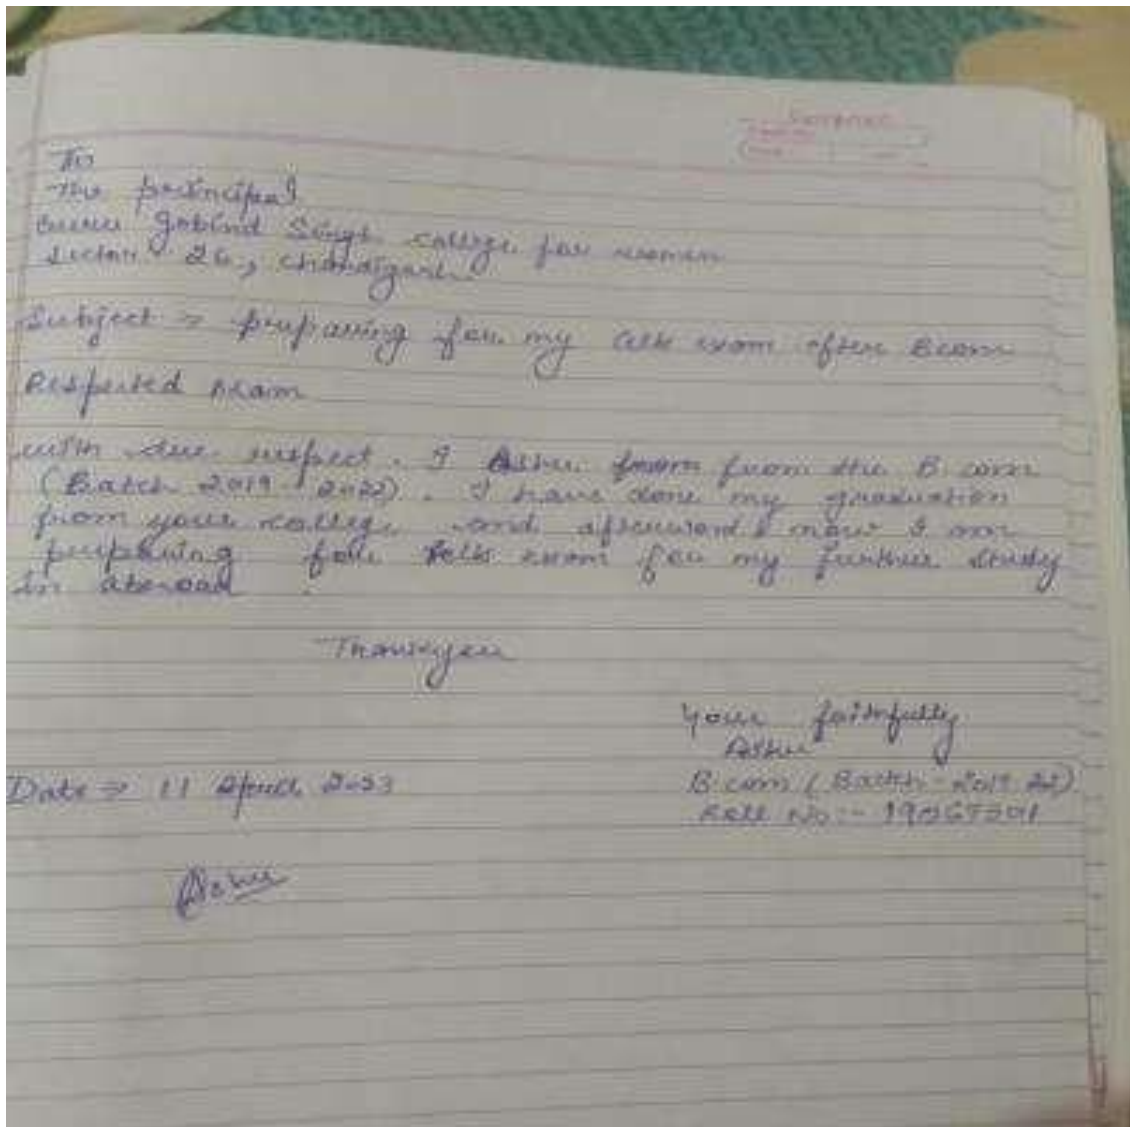 To
The principal
Guru Gobind Singh college for women
Sector - 26, Chandigarh
Subject → preparing for my exam after Bcom
Respected Mam
with due respect. I Ashu from from the B com
(Batch 2019 - 2022). I have done my graduation
from your college and afterward now I am
preparing for exam for my further study
in abroad.
Thankyou
Your faithfully
Ashu
Date → 11 April 2023
B.com (Batch - 2019-22)
Roll No :-
Ashu